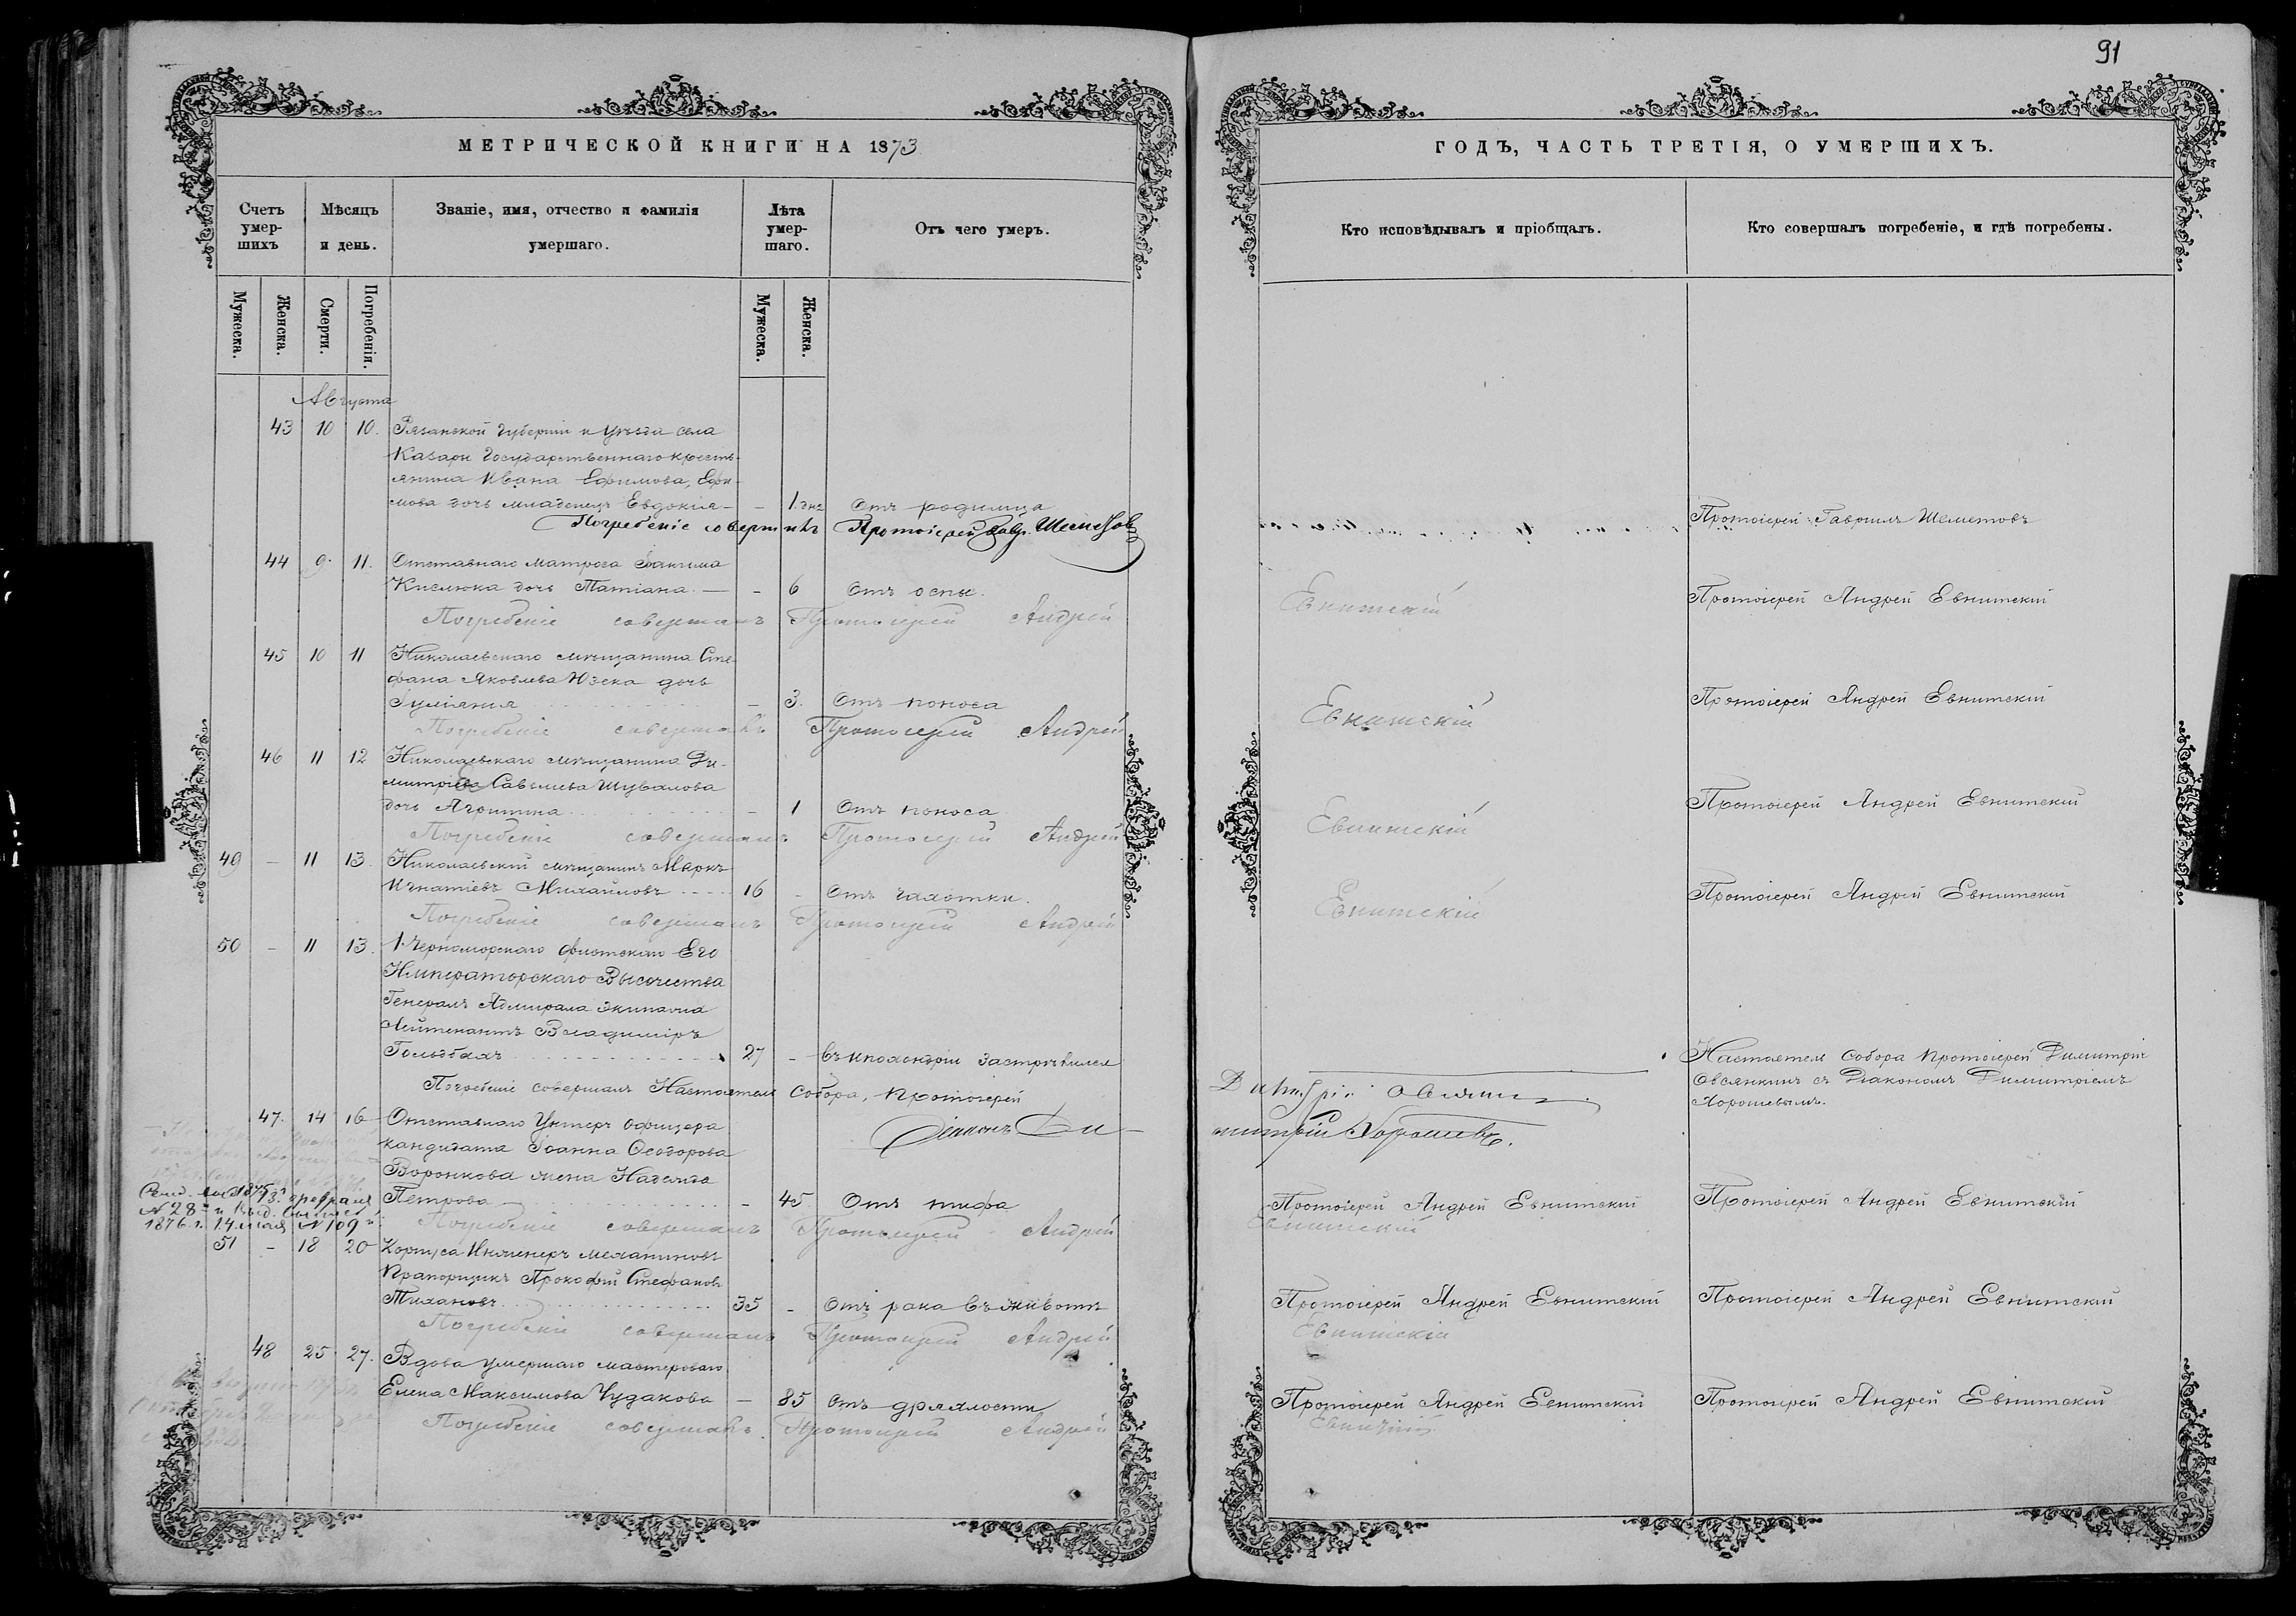 91
МЕТРИЧЕСКОЙ КНИГИ НА 1873
ГОДЪ, ЧАСТЬ ТРЕТІЯ, О УМЕРШИХЪ.
Счетъ умер-шихъ
Мѣсяцъ и день.
Званіе, имя, отчество и фамилія умершаго.
Лѣта умер-шаго.
Отъ чего умеръ.
Кто исповѣдывалъ и пріобщалъ.
Кто совершалъ погребеніе, и гдѣ погребены.
Мужеска.
Женска.
Смерти.
Погребенія.
Мужеска.
Женска.
Августа
43 10 10. Рязанской губерніи и уѣзда села
Казари Государственнаго кресть-
янина Ивана Ефимова, Ефи-
мова дочь младенецъ Евдокія – – 1 дня Отъ родимца Протоіерей Гавріилъ Шеметовъ
Погребеніе совершилъ Протоіерей Гавр. Шеметовъ
44 9. 11. Отставнаго матроса
Кислюка дочь Татіана. — – 6 Отъ оспы. Протоіерей Андрей Евнитский
Погребеніе совершалъ Протоіерей Андрей Евнитскій
45 10 11 Николаевскаго мѣщанина Сте-
фана Яковлева Юзека дочь
Іуліанія – 3. Отъ поноса Протоіерей Андрей Евнитский
Погребеніе совершалъ Протоіерей Андрей Евнитскій
46 11 12 Николаевскаго мѣщанина Ди-
митрія Савельева Шувалова
дочь Агриппина – 1 Отъ поноса Протоіерей Андрей Евнитский
Погребеніе совершалъ Протоіерей Андрей Евнитскій
49 – 11 13. Николаевский мѣщанинъ Маркъ
Игнатіевъ Михайловъ 16 – Отъ чахотки. Протоіерей Андрей Евнитский
Погребеніе совершалъ Протоіерей Андрей Евнитскій
50 – 11 13. 1. Черноморскаго флотскаго Его
Императорскаго Высочества
Генералъ Адмирала экипажа
Лейтенантъ Владиміръ
27 – въ ипохондріи застрѣлился Настоятель Собора Протоіерей Димитрій
Овсянкинъ съ Діакономъ Димитріемъ
Хорошевымъ.
Погребеніе совершалъ Настоятель Собора, Протоіерей Димитрій Овсянкинъ
Діаконъ Ди-
митрій Хорошевъ.
47. 14 16 Отставнаго Унтеръ офицера
кандидата Іоанна Ѳеодорова
Воронкова жена Надежда
Петрова – 45 Отъ тифа Протоіерей Андрей Евнитский Протоіерей Андрей Евнитский
февраля
№ 28
1876 г. 14 мая № 109
Погребеніе совершалъ Протоіерей Андрей Евнитскій
51 – 18 20 Корпуса Инженеръ механиковъ
Прапорщикъ Прокофій Стефановъ
Тихановъ 35 – Отъ рака въ животѣ Протоіерей Андрей Евнитский Протоіерей Андрей Евнитский
Погребеніе совершалъ Протоіерей Андрей Евнитскій
48 25 27. Вдова умершаго мастероваго
Елена Максимова Чудакова — 85 отъ дряхлости Протоіерей Андрей Евнитский Протоіерей Андрей Евнитский
Погребеніе совершалъ Протоіерей Андрей Евнитскій